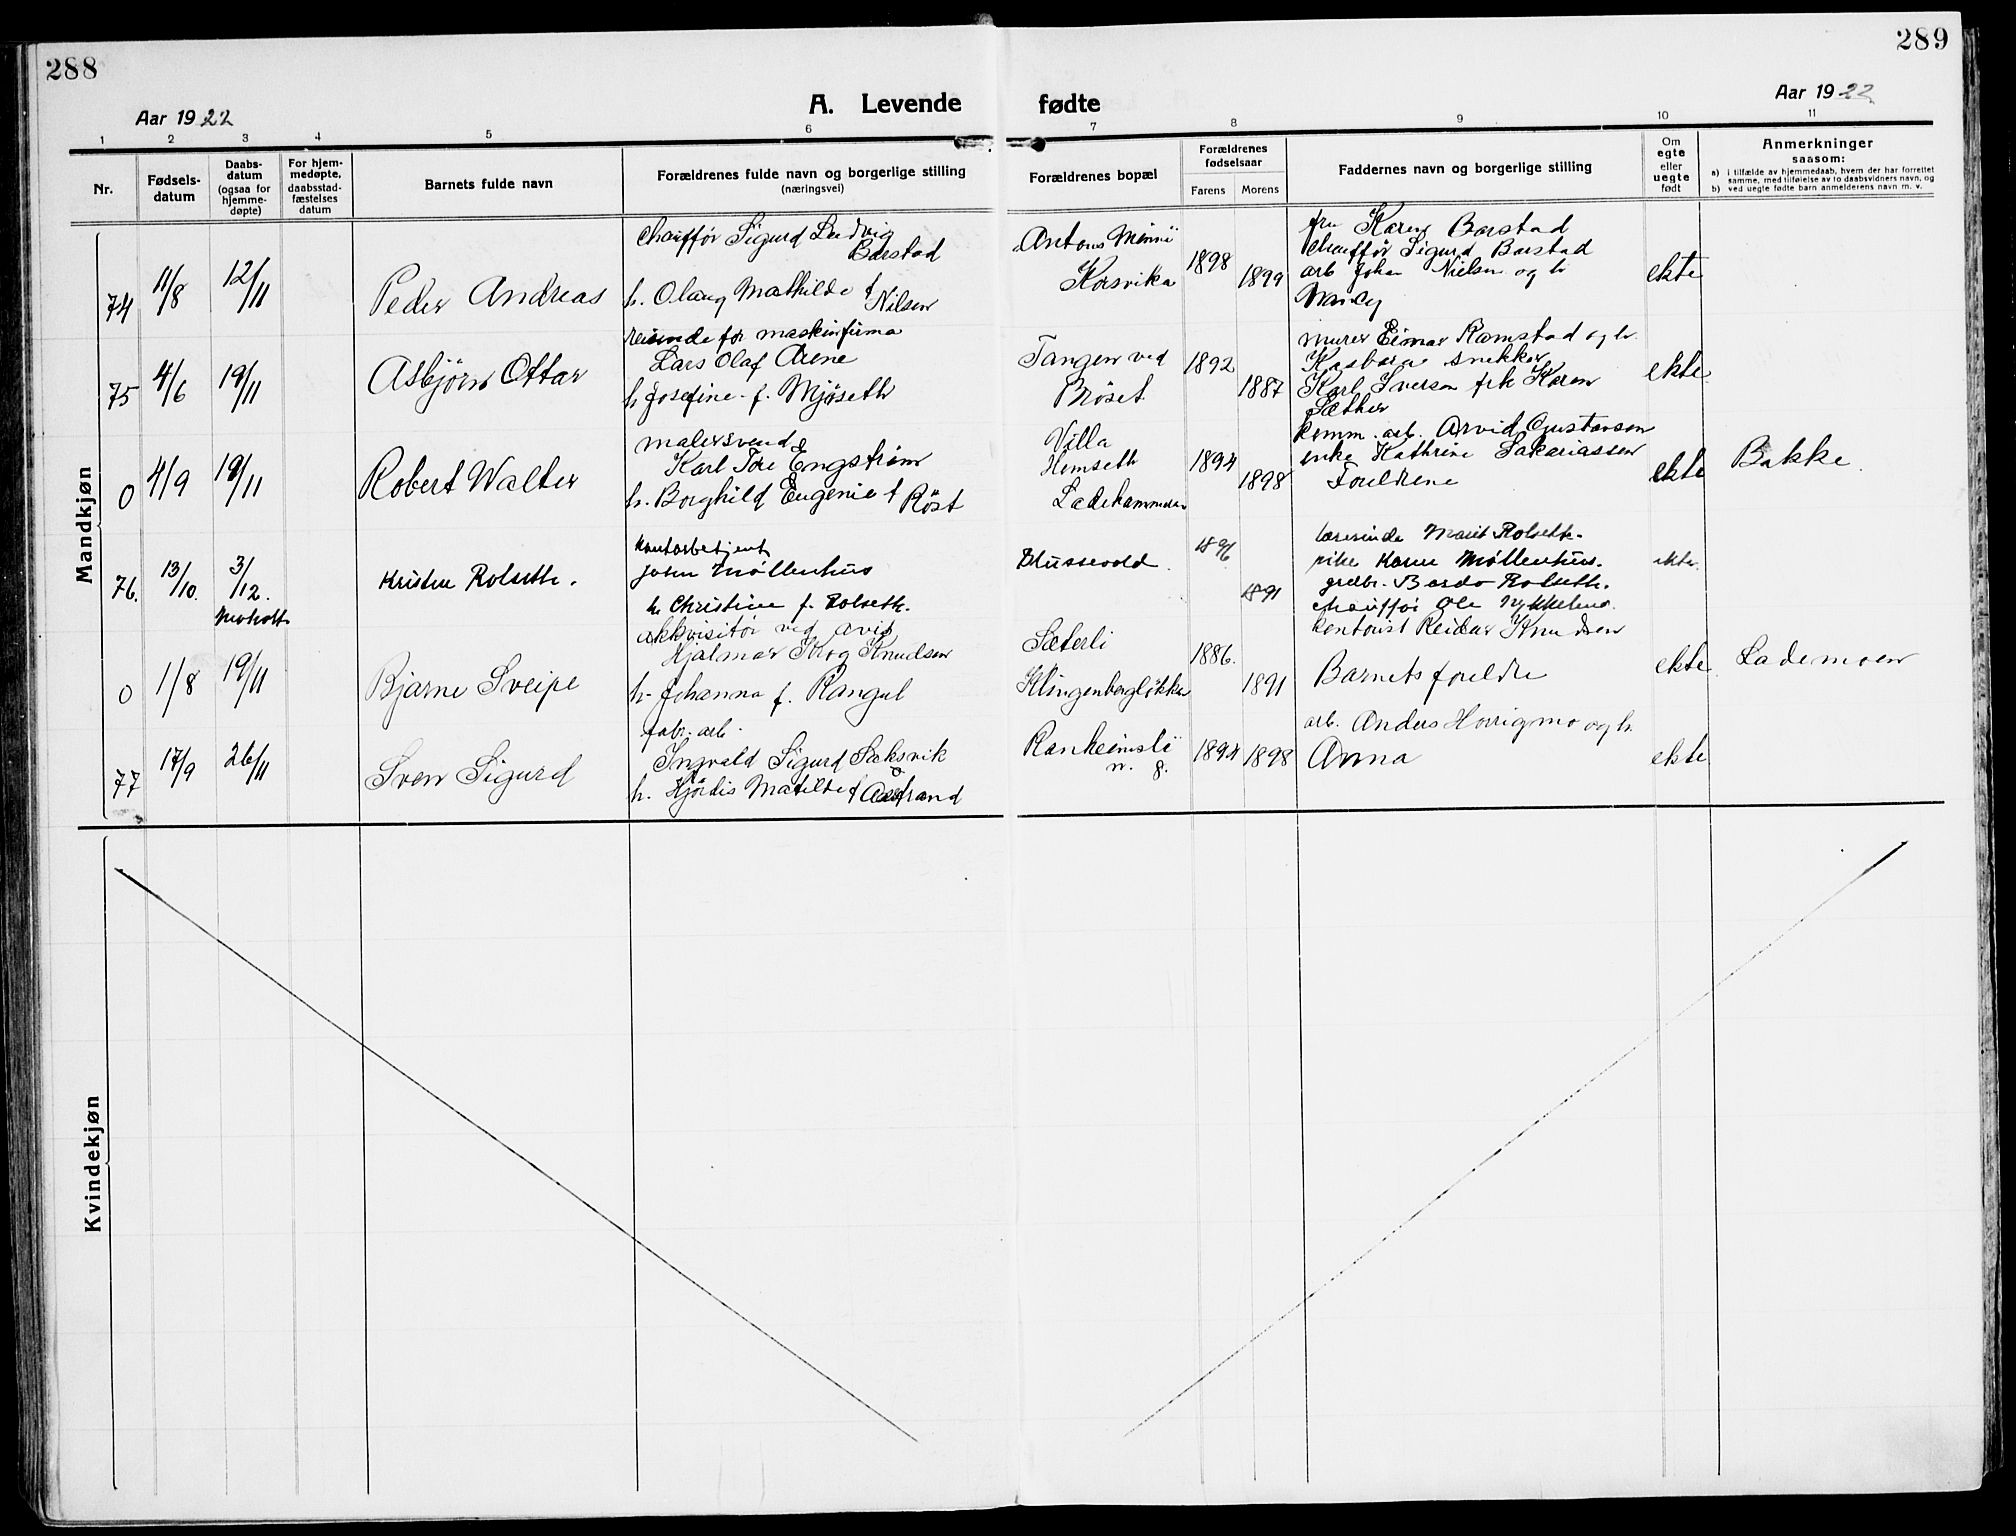 288
289
Aar 1922
A. Levende fødte
Aar 1922
1 2 3 4 5 6 7 8 9 10 11
Nr.
Fødsels-
datum
Daabs-
datum
(ogsaa for
hjemme-
døpte)
For hjem-
medøpte,
daabsstad-
fæstelses
datum
Barnets fulde navn
Forældrenes fulde navn og borgerlige stilling
(næringsvei)
Forældrenes bopæl
Forældrenes
fødselsaar
Farens Morens
Faddernes navn og borgerlige stilling
Om
egte
eller
uegte
født
Anmerkninger
saasom:
a) i tilfælde av hjemmedaab, hvem der har forrettet
samme, med tilføielse av to daabsvidners navn, og
b) ved uegte fødte barn anmelderens navn m. v.
Mandkjøn
74
11/8
12/11
Peder Andreas
Chauffør Sigurd Ludvig
Barstad
h. Olaug Mathilde f
Nilsen
Antons Minni
Korsvika
1898
1899
fru Karen Barstad
Chauffør Sigurd Barstad
arb Johan Nielsen og h
ekte
75
4/6
19/11
Asbjørn Ottar
reisende for maskinfirma
Lars Olaf Arene
h. Josefine f. Mjøseth
Tangen ved
Brøset
1892
1887
murer Eimar Ramstad og h.
snekker
Karl Iversen frk Karen
Sæther
ekte
0
4/9
19/11
Robert Walter
malersvend
Karl Tore Engstrøm
h. Borghild Eugenie f Røst
Villa
Hemseth
Ladehammeren
1894
1898
komm. arb. Arvid Gustavsen
enke Kathrine Sakariassen
Foreldrene
ekte
Bakke
76.
13/10.
3/12.
Moholt
Kristen Rolseth.
Kontorbetjent
John Møllenhus
h. Christine f. Rolseth.
Blussevold.
1896
1891
lærerinde Marit Rolseth.
pike Karen Møllenhus.
grdbr. Bardo Rolseth.
chauffør Ole Nykkelmo.
ekte.
0
1/8
19/11
Bjarne Sveipe
akkvisitør ved avis
Hjalmar Krog Knudsen
h. Johanna f. Rangul
Sæterli
Klingenbergløkka
1886.
1891
kontorist Reidar Knudsen
Barnets foreldre
ekte
Lademoen
77
17/9
26/11
Sven Sigurd
fabr. arb.
Ingvald Sigurd Saksvik
h. Hjørdis Matilde f Aastrand
Ranheimsli
n. g.
1894
1898
arb. Anders Horrigmo og h.
Anna
ekte
Kvindekjøn